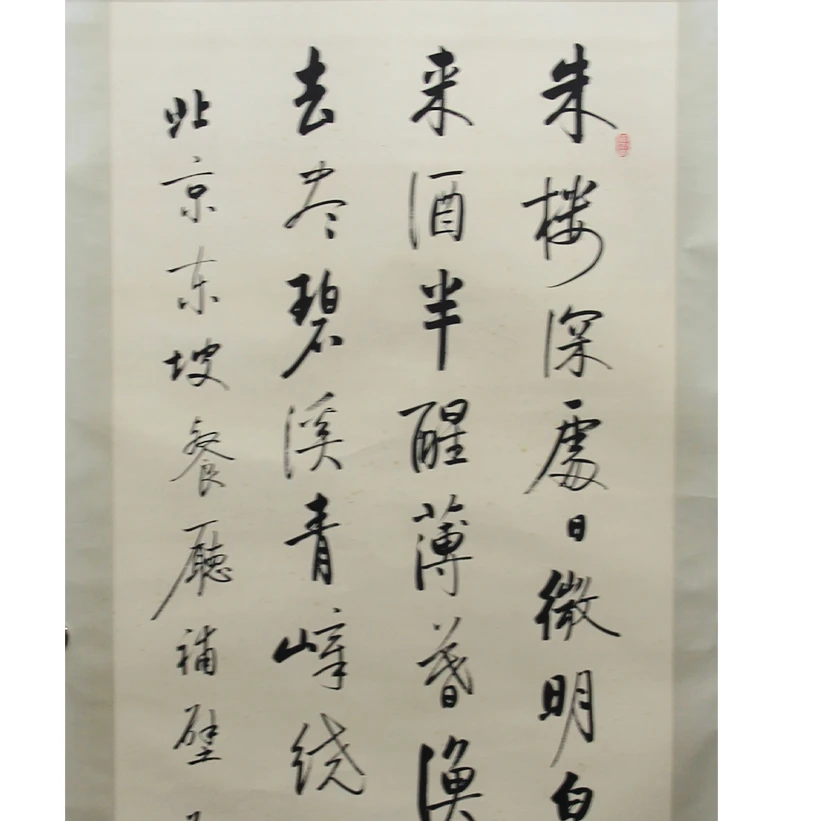 朱楼深處日微明白
来酒半醒薄暮漁
去尽碧溪青嶂绕
北京东坡餐廳補壁